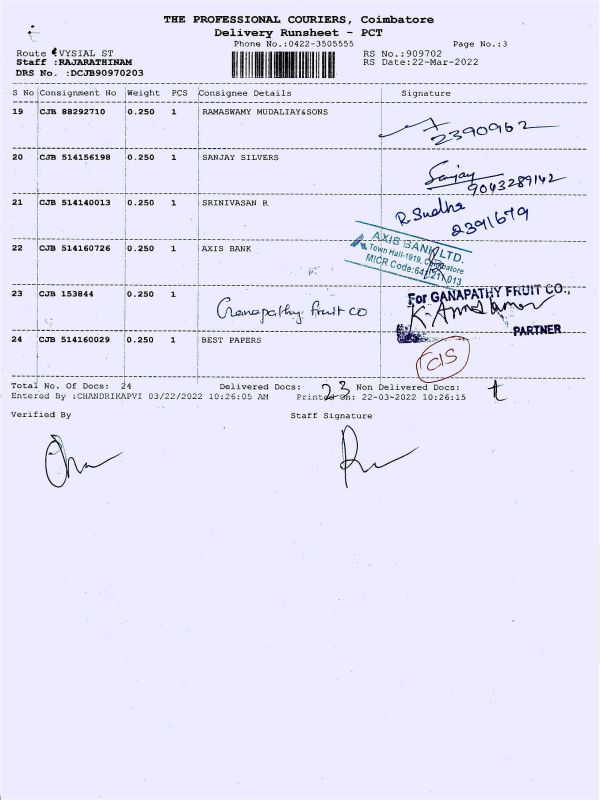 THE PROFESSIONAL COURIERS, Coimbatore
Delivery Runsheet - PCT
Phone No.:0422-3505555 Page No.:3
Route :VYSIAL ST RS No.:909702
Staff :RAJARATHINAM RS Date:22-Mar-2022
DRS No. :DCJB90970203
S No Consignment No Weight PCS Consignee Details Signature
19 CJB 88292710 0.250 1 RAMASWAMY MUDALIAY&SONS
2390962
20 CJB 514156198 0.250 1 SANJAY SILVERS
Sanjay
9043289142
21 CJB 514140013 0.250 1 SRINIVASAN R
R. Sudha
2391679
22 CJB 514160726 0.250 1 AXIS BANK
AXIS BANK LTD.
Town Hall-1919, Coimbatore
MICR Code:641211013
23 CJB 153844 0.250 1 Ganapathy fruit co
For GANAPATHY FRUIT CO.,
PARTNER
24 CJB 514160029 0.250 1 BEST PAPERS
C/S
Total No. Of Docs: 24 Delivered Docs: 23 Non Delivered Docs: 1
Entered By :CHANDRIKAPVI 03/22/2022 10:26:05 AM Printed On: 22-03-2022 10:26:15
Verified By Staff Signature